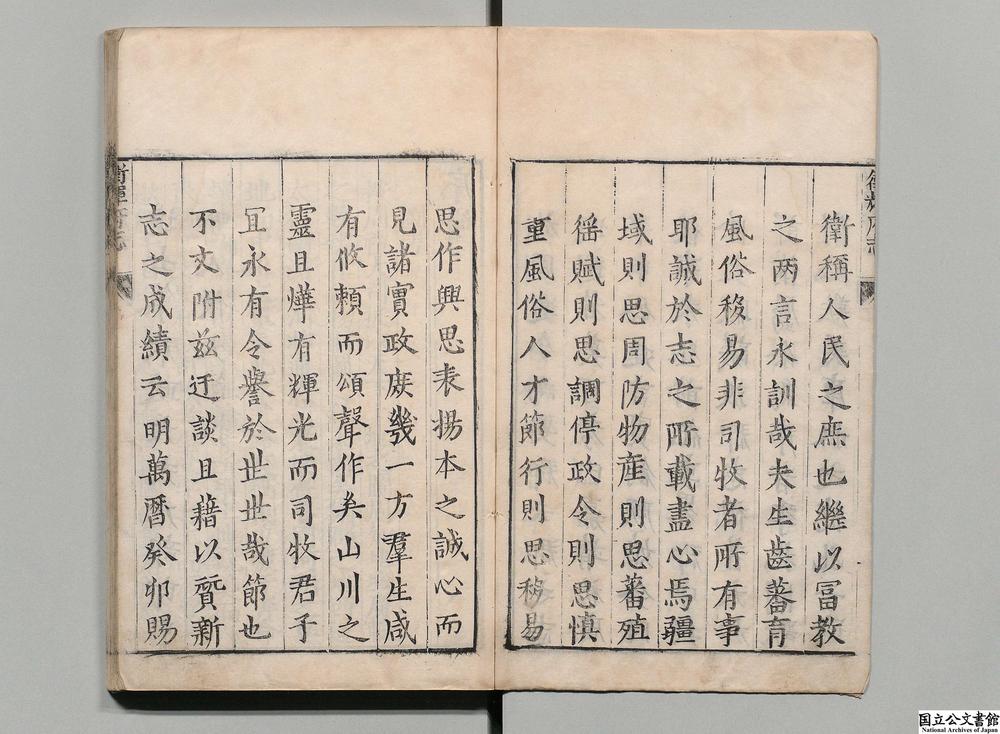 衛稱人民之庶也繼以冨教
之两言永訓哉夫生齒蕃育
風俗移易非司牧者所有事
耶誠於志之所載盡心焉疆
域則思周防物産則思蕃殖
徭賦則思調停政令則思慎
重風俗人才節行則思移易
思作興思表揚本之誠心而
見諸實政庻幾一方羣生咸
有攸頼而頌聲作矣山川之
靈且燁有輝光而司牧君子
冝永有令譽於世世哉節也
不文附兹迂談且藉以贊新
志之成績云明萬曆癸卯賜
衛輝府志
国立公文書館
National Archives of Japan